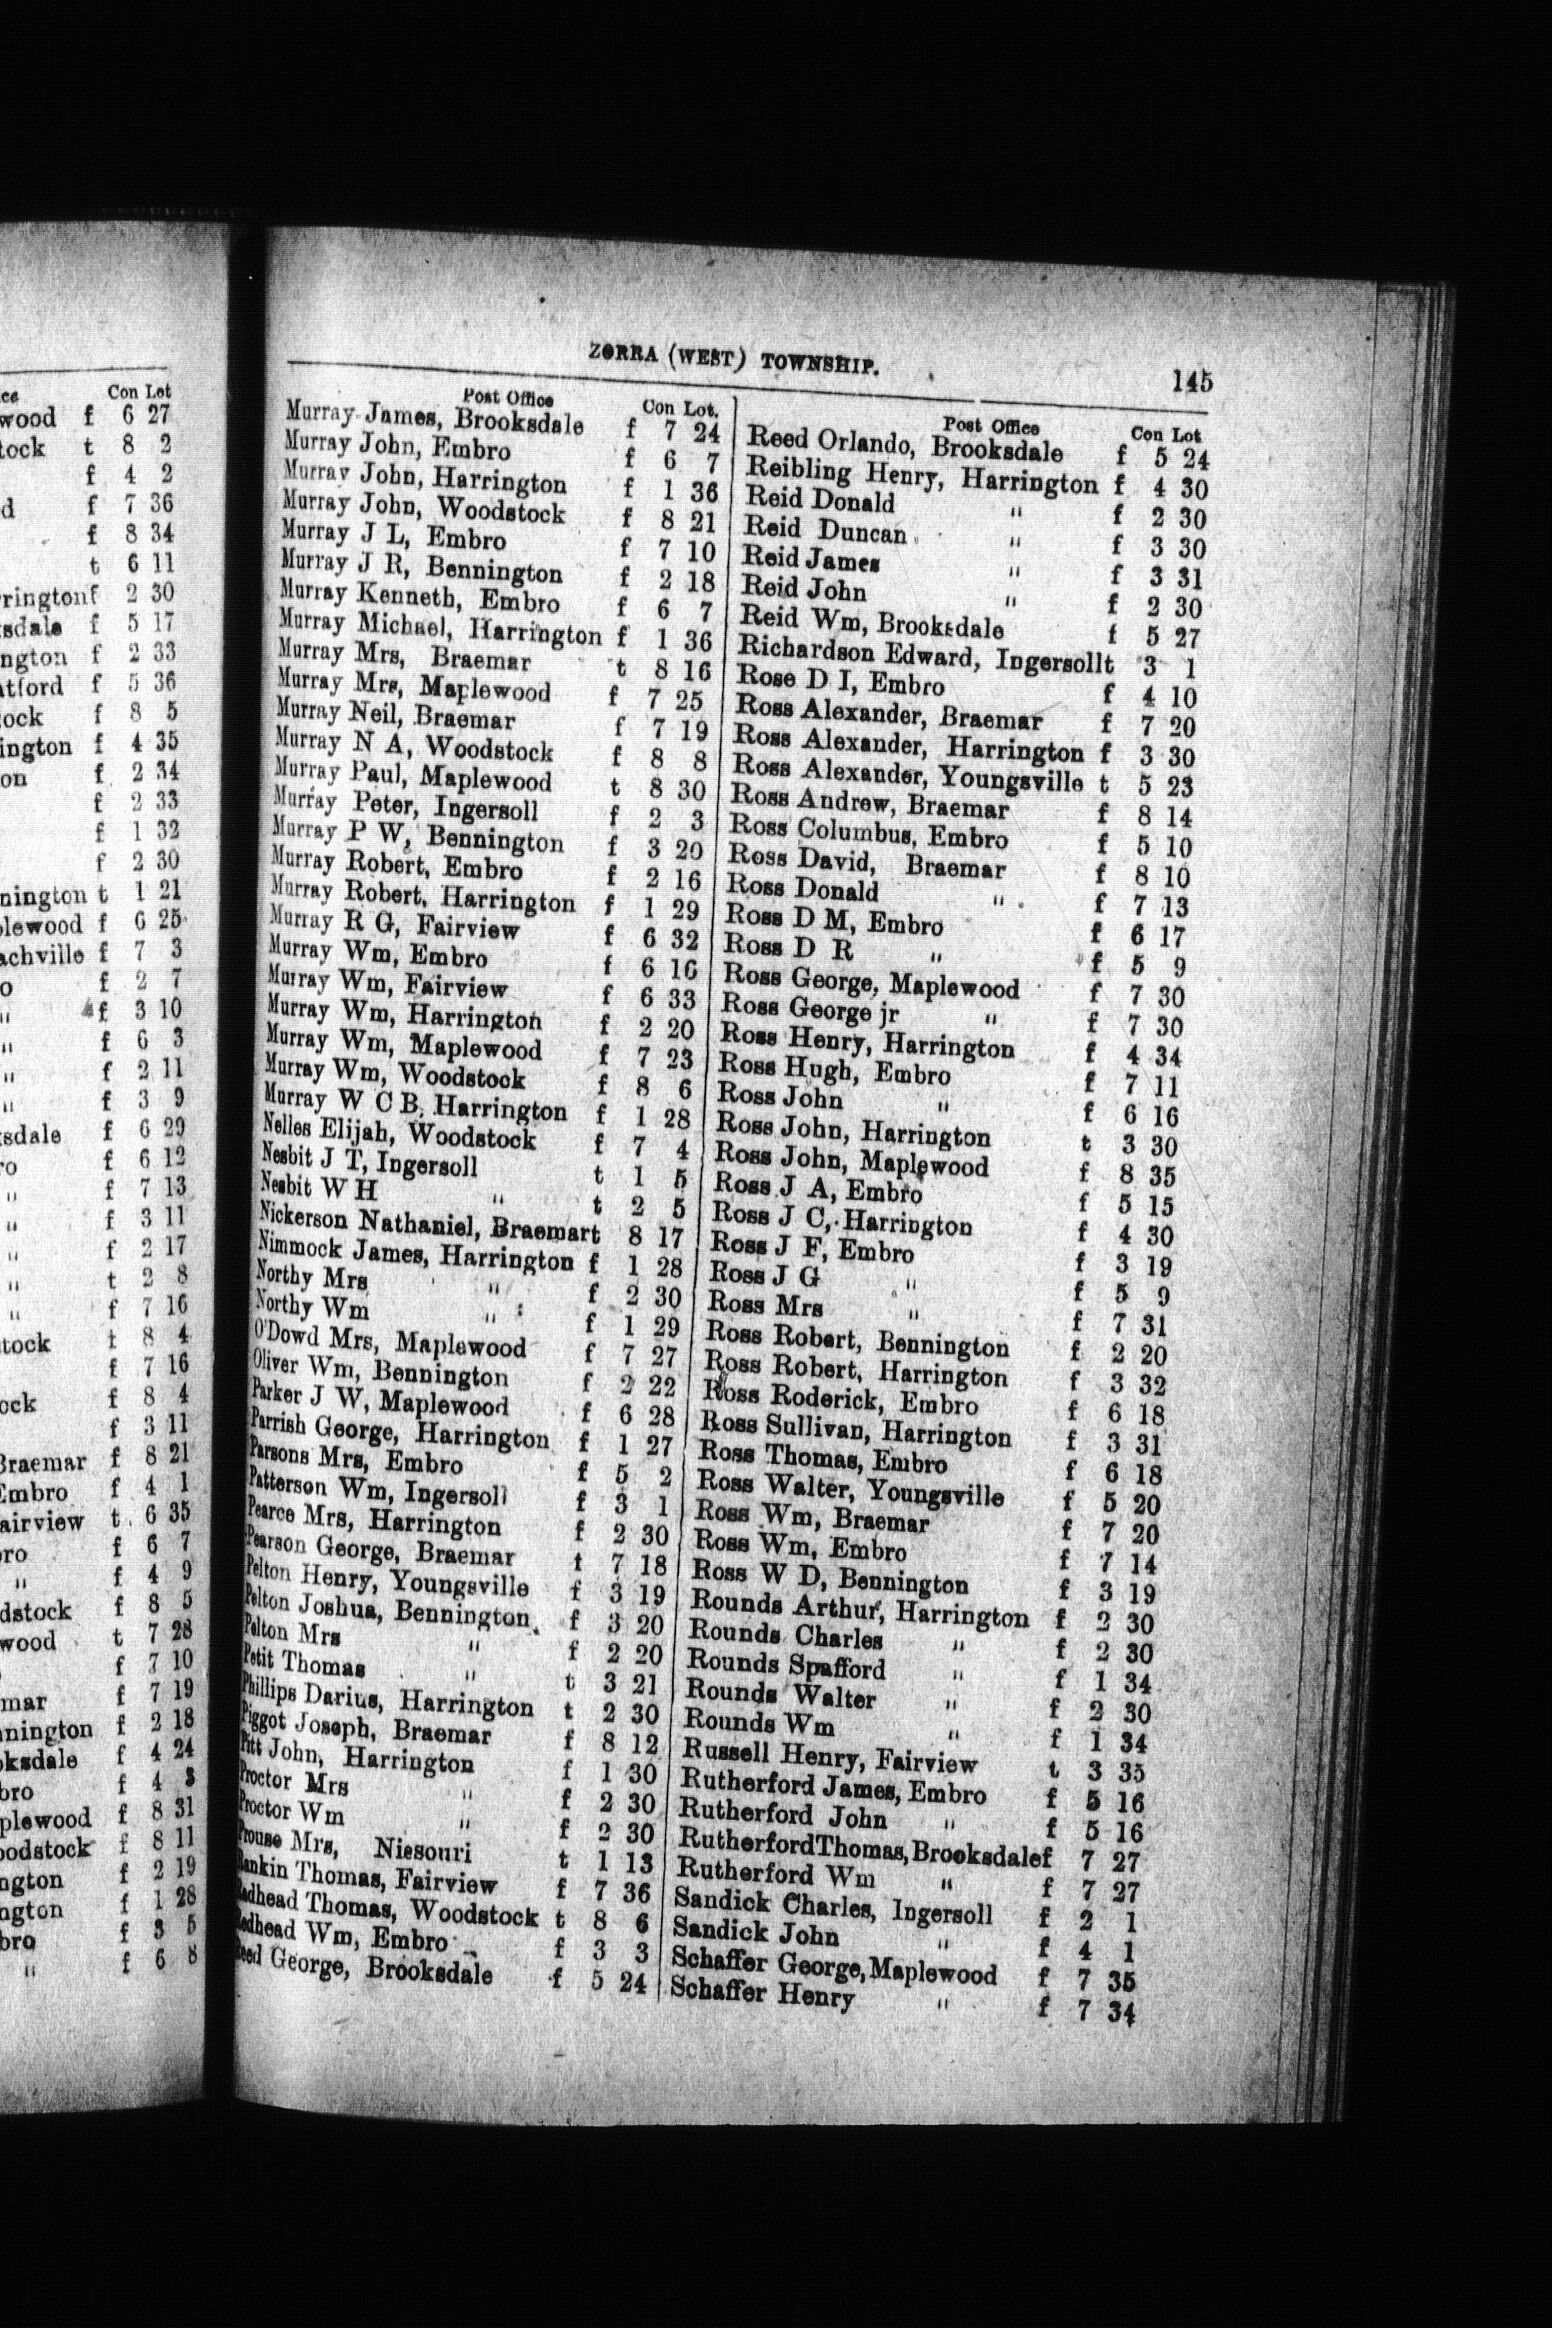 ce Con Lot
wood f 6 27
tock t 8 2
f 4 2
d f 7 36
f 8 34
t 6 11
rrington f 2 30
ksdale f 5 17
ington f 2 33
atford f 5 36
ock f 8 5
ington f 4 35
on f 2 34
f 2 33
f 1 32
f 2 30
nington t 1 21
plewood f 6 25
achville f 7 3
o f 2 7
" f 3 10
" f 6 3
" f 2 11
" f 3 9
ksdale f 6 29
ro f 6 12
" f 7 13
" f 3 11
" f 2 17
" t 2 8
" f 7 16
tock t 8 4
f 7 16
ock f 8 4
f 3 11
Braemar f 8 21
Embro f 4 1
airview t 6 35
bro f 6 7
" f 4 9
dstock f 8 5
wood t 7 28
f 7 10
mar f 7 19
nnington f 2 18
oksdale f 4 24
bro f 4 3
plewood f 8 31
oodstock f 8 11
ngton f 2 19
ngton f 1 28
bro f 3 5
" f 6 8
ZORRA (WEST) TOWNSHIP. 145
Post Office Con Lot.
Murray James, Brooksdale f 7 24
Murray John, Embro f 6 7
Murray John, Harrington f 1 36
Murray John, Woodstock f 8 21
Murray J L, Embro f 7 10
Murray J R, Bennington f 2 18
Murray Kenneth, Embro f 6 7
Murray Michael, Harrington f 1 36
Murray Mrs, Braemar t 8 16
Murray Mrs, Maplewood f 7 25
Murray Neil, Braemar f 7 19
Murray N A, Woodstock f 8 8
Murray Paul, Maplewood t 8 30
Murray Peter, Ingersoll f 2 3
Murray P W, Bennington f 3 20
Murray Robert, Embro f 2 16
Murray Robert, Harrington f 1 29
Murray R G, Fairview f 6 32
Murray Wm, Embro f 6 16
Murray Wm, Fairview f 6 33
Murray Wm, Harrington f 2 20
Murray Wm, Maplewood f 7 23
Murray Wm, Woodstock f 8 6
Murray W C B, Harrington f 1 28
Nelles Elijah, Woodstock f 7 4
Nesbit J T, Ingersoll t 1 5
Nesbit W H " t 2 5
Nickerson Nathaniel, Braemar t 8 17
Nimmock James, Harrington f 1 28
Northy Mrs " f 2 30
Northy Wm " f 1 29
O'Dowd Mrs, Maplewood f 7 27
Oliver Wm, Bennington f 2 22
Parker J W, Maplewood f 6 28
Parrish George, Harrington f 1 27
Parsons Mrs, Embro f 5 2
Patterson Wm, Ingersoll f 3 1
Pearce Mrs, Harrington f 2 30
Pearson George, Braemar t 7 18
Pelton Henry, Youngsville f 3 19
Pelton Joshua, Bennington f 3 20
Pelton Mrs " f 2 20
Petit Thomas " t 3 21
Phillips Darius, Harrington t 2 30
Piggot Joseph, Braemar f 8 12
Pitt John, Harrington f 1 30
Proctor Mrs " f 2 30
Proctor Wm " f 2 30
Prouse Mrs, Niesouri t 1 13
Rankin Thomas, Fairview f 7 36
Redhead Thomas, Woodstock t 8 6
Redhead Wm, Embro f 3 3
Reed George, Brooksdale f 5 24
Post Office Con Lot
Reed Orlando, Brooksdale f 5 24
Reibling Henry, Harrington f 4 30
Reid Donald " f 2 30
Reid Duncan " f 3 30
Reid James " f 3 31
Reid John " f 2 30
Reid Wm, Brooksdale f 5 27
Richardson Edward, Ingersoll t 3 1
Rose D I, Embro f 4 10
Ross Alexander, Braemar f 7 20
Ross Alexander, Harrington f 3 30
Ross Alexander, Youngsville t 5 23
Ross Andrew, Braemar f 8 14
Ross Columbus, Embro f 5 10
Ross David, Braemar f 8 10
Ross Donald " f 7 13
Ross D M, Embro f 6 17
Ross D R " f 5 9
Ross George, Maplewood f 7 30
Ross George jr " f 7 30
Ross Henry, Harrington f 4 34
Ross Hugh, Embro f 7 11
Ross John " f 6 16
Ross John, Harrington t 3 30
Ross John, Maplewood f 8 35
Ross J A, Embro f 5 15
Ross J C, Harrington f 4 30
Ross J F, Embro f 3 19
Ross J G " f 5 9
Ross Mrs " f 7 31
Ross Robert, Bennington f 2 20
Ross Robert, Harrington f 3 32
Ross Roderick, Embro f 6 18
Ross Sullivan, Harrington f 3 31
Ross Thomas, Embro f 6 18
Ross Walter, Youngsville f 5 20
Ross Wm, Braemar f 7 20
Ross Wm, Embro f 7 14
Ross W D, Bennington f 3 19
Rounds Arthur, Harrington f 2 30
Rounds Charles " f 2 30
Rounds Spafford " f 1 34
Rounds Walter " f 2 30
Rounds Wm " f 1 34
Russell Henry, Fairview t 3 35
Rutherford James, Embro f 5 16
Rutherford John " f 5 16
Rutherford Thomas, Brooksdale f 7 27
Rutherford Wm " f 7 27
Sandick Charles, Ingersoll f 2 1
Sandick John " f 4 1
Schaffer George, Maplewood f 7 35
Schaffer Henry " f 7 34